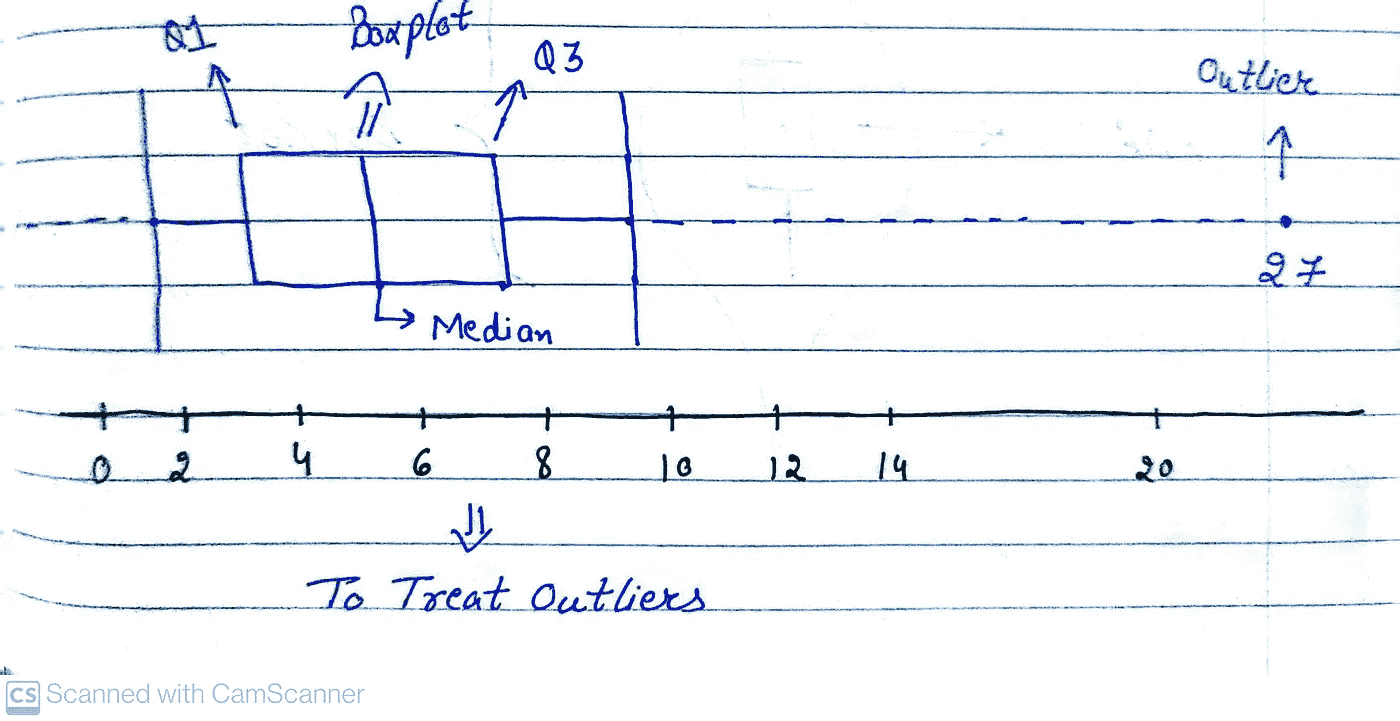 Boxplot
Q1
Q3
Outlier
27
Median
0 2 4 6 8 10 12 14 20
To Treat Outliers
CS Scanned with CamScanner